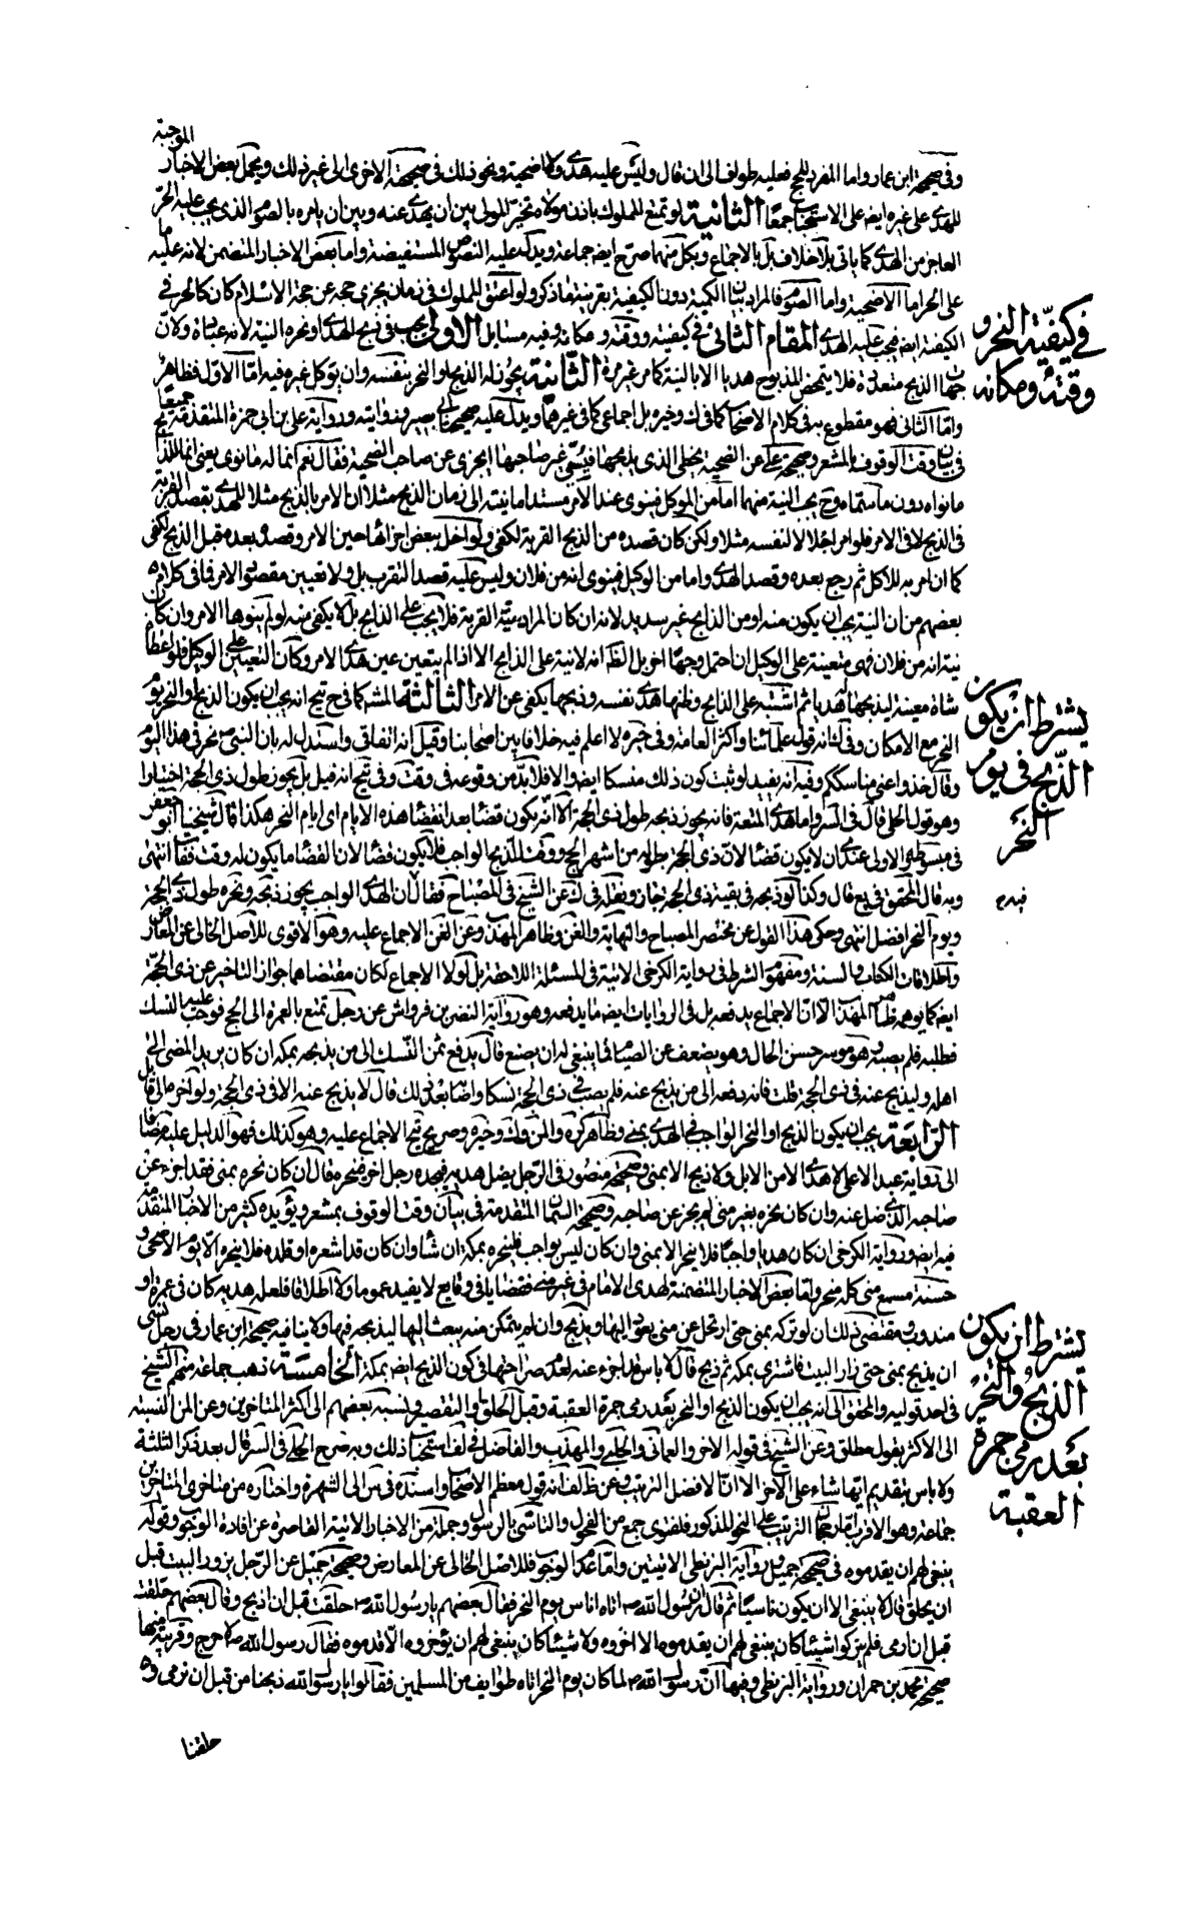 الموجبة
وفي صحيحة ابن عمار واما المفرد للحج فعليه طواف الى ان قال وليس عليه هدي ولا اضحية ونحو ذلك في صحيحته الاخرى الى غير ذلك ويحمل بعض الاخبار
للهدي على غيره ايضا على الاستحباب جمعا الثانية لو تمتع المملوك باذن مولاه تخير المولى بين ان يهدي عنه وبين ان يامره بالصوم الذي يجب عليه الحر
العاجز من الهدي كما ياتي بلا خلاف بل بالاجماع وبكل منهما صرح ايضا جماعة ويدل عليه النصوص المستفيضة واما بعض الاخبار المتضمن لانه عليه ما
على الحر اما الاضحية واما الصوم فالمراد بيان الكمية دون الكيفية بقرينة ما ذكر ولو اعتق المملوك في زمان يجزي حجه عن حجة الاسلام كان كالحر في
الكيفية ايضا فيجب عليه الهدي المقام الثاني في كيفيته ووقته ومكانه وفيه مسايل الاولى يجب في ذبح الهدي او نحره النية لانه عبادة ولان
جهات الذبح متعددة فلا يتمحض المذبوح هديا الا بالنية كما مر غير مرة الثانية يجوز له الذبح او النحر بنفسه وان يوكل غيره فيه اما الاول فظاهر
واما الثاني فهو مقطوع به في كلام الاصحاب كما في ك وخيره بل اجماعي كما في غيرهما ويدل عليه صحيحة ابي بصير وروايته ورواية علي بن ابي حمزة المتقدمة جميعا
في بيان وقت الوقوف بالمشعر وصحيحة علي عن الضحية يخطئ الذي يذبحها فيسمي غير صاحبها ايجزي عن صاحب الضحية فقال نعم انما له ما نوى يعني انما للذابح
ما نواه دون ما سماه وح يجب النية منهما اما من الموكل فينوي عند الامر مستداما نيته الى زمان الذبح مثلا ان الامر بالذبح مثلا للهدي بقصد القربة
في الذبح لا في الامر فلو امر اجلالا لنفسه مثلا ولكن كان قصده من الذبح القربة لكفى ولو اخل ببعض اجزائها حين الامر وقصده بعده قبل الذبح لكفى
كما ان امر به للاكل ثم رجع بعده وقصد الهدي واما من الوكيل فينوي انه من فلان وليس عليه قصد التقرب بل ولا تعيين مقصود الامر فما في كلام
بعضهم من ان النية يجب ان يكون منه او من الذابح غير سديد لانه ان كان المراد بنية القربة فلا يجب على الذابح بل لا يكفي منه لو لم ينوها الامر وان كان
نية انه من فلان فهي متعينة على الوكيل ان احتمل وجها اخر بل الظ انه لا نية على الذابح الا اذا لم يتعين عين هدي الامر وكان التعيين على الوكيل فلو اعطاه
شاة معينة ليذبحها له هديا ثم اشتبه على الذابح وظنها هدي نفسه وذبحها يكفي عن الامر الثالثة المش كما في ح تيج انه يجب ان يكون الذبح او النحر يوم
النحر مع الامكان وفي ك انه قول علمائنا واكثر العامة وفي خيره لا اعلم فيه خلافا بين اصحابنا وقيل انه اتفاقي واستدل له بان النبي ص نحر في هذا اليوم
وقال خذوا عني مناسككم وفيه انه يفيد لو ثبت كون ذلك منسكا ايضا والا فلا بد من وقوعه في وقت وفي تيج انه قيل بل يجوز طول ذي الحجة اختيارا
وهو قول الحلي قال في السر واما هدي المتعة فانه يجوز ذبحه طول ذي الحجة الا انه يكون قضاء بعد انقضاء هذه الايام اي ايام النحر هكذا قال شيخنا ابو جعفر
في مبسوطه والاولى عندي ان لا يكون قضاء لان ذي الحجة بطوله من اشهر الحج ووقت للذبح الواجب فلا يكون قضاء لان القضاء ما يكون له وقت ففات انتهى
وبه قال المحقق في يع قال وكذا لو ذبحه في بقية ذي الحجة جاز ونقله في ك عن الشيخ في المصباح فقال ان الهدي الواجب يجوز ذبحه ونحره طول ذي الحجة
ويوم النحر افضل انتهى وحكي هذا القول عن مختصر المصباح والنهاية والغنية وظاهر المهذب وعن الغنية الاجماع عليه وهو الاقوى للاصل الخالي عن المعارض
واطلاقات الكتاب والسنة ومفهوم الشرط في رواية الكرخي الاتية في المسئلة اللاحقة بل لولا الاجماع لكان مقتضاها جواز التاخير عن ذي الحجة
ايضا كما يوهمه ظاهر المهذب الا ان الاجماع يدفعه بل في الروايات ايضا ما يدفعه وهو رواية النضر بن قرواش عن رجل تمتع بالعمرة الى الحج فوجب عليه النسك
فطلبه فلم يصبه وهو موسر حسن الحال وهو يضعف عن الصيام فما ينبغي له ان يصنع قال يدفع ثمن النسك الى من يذبحه بمكة ان كان يريد المضي الى
اهله وليذبح عنه في ذي الحجة قلت فانه دفعه الى من يذبح عنه فلم يصب في ذي الحجة نسكا واصابه بعد ذلك قال لا يذبح عنه الا في ذي الحجة ولو اخره الى قابل
الرابعة يجب ان يكون الذبح او النحر الواجب في الهدي بمنى وظاهر كره والمن وك وخيره وصريح تيج الاجماع عليه وهو كذلك فهو الدليل عليه مضافا
الى رواية عبد الاعلى لا هدي الا من الابل ولا ذبح الا بمنى وصحيحة منصور في الرجل يضل هديه فيجده رجل اخر فينحره فقال ان كان نحره بمنى فقد اجزء عن
صاحبه الذي ضل عنه وان كان نحره بغير منى لم يجز عن صاحبه وصحيحة الشحام المتقدمة في بيان وقت الوقوف بمشعر ويؤيده كثير من الاخبار المتقدمة
فيه ايضا ورواية الكرخي ان كان هديا واجبا فلا ينحر الا بمنى وان كان ليس بواجب فلينحره بمكة ان شاء وان كان قد اشعره او قلده فلا ينحره الا يوم الاضحى و
حسنة مسمع منى كله منحر واما بعض الاخبار المتضمنة لهدي الامام في غير منى فقضايا في وقايع لا يفيد عموما ولا اطلاقا فلعل هديه كان في عمرة او
مندوب ومقتضى ذلك ان لو تركه بمنى حتى ارتحل عن منى يعود اليها ويذبح وان لم يتمكن منه يبعث اليها ليذبحه فيها ولا ينافيه صحيحة ابن عمار في رجل نسي
ان يذبح بمنى حتى زار البيت فاشترى بمكة ثم ذبح قال لا باس قد اجزء عنه لعدم صراحتها في كون الذبح ايضا بمكة الخامسة ذهب جماعة منهم الشيخ
في احد قوليه والمحقق الى انه يجب ان يكون الذبح او النحر بعد رمي جمرة العقبة وقبل الحلق والتقصير ونسبه بعضهم الى اكثر المتاخرين وعن المن النسبة
الى الاكثر بقول مطلق وعن الشيخ في قوله الاخر والعماني والحلبي والمهذب والفاضل في لف استحباب ذلك وبه صرح الحلي في السر قال بعد ذكر الثلثة
ولا باس بتقديم ايها شاء على الاخر الا ان الافضل الترتيب وعن ظ لف انه قول معظم الاصحاب واسنده في س الى الشهرة واختاره من متاخري المتاخرين
جماعة وهو الاقرب اما رجحان الترتيب على النحو المذكور فلفتوى جمع من الفحول والتاسي بالرسول وجملة من الاخبار الاتية القاصرة عن افادة الوجوب وقوله
ينبغي لهم ان يقدموه في صحيحة جميل ورواية البزنطي الاتيتين واما عدم الوجوب فللاصل الخالي عن المعارض وصحيحة جميل عن الرجل يزور البيت قبل
ان يحلق قال لا ينبغي الا ان يكون ناسيا ثم قال ان رسول الله ص اتاه اناس يوم النحر فقال بعضهم يا رسول الله ص حلقت قبل ان اذبح وقال بعضهم حلقت
قبل ان ارمي فلم يتركوا شيئا كان ينبغي لهم ان يقدموه الا اخروه ولا شيئا كان ينبغي لهم ان يؤخروه الا قدموه فقال رسول الله ص لا حرج وقريبة منها
صحيحة محمد بن حمران ورواية البزنطي وفيها ان رسول الله ص لما كان يوم النحر اتاه طوايف من المسلمين فقالوا يا رسول الله ذبحنا من قبل ان نرمي و
حلقنا
في كيفية النحر و
وقته ومكانه
يشترط ان يكون
الذبح في يوم
النحر
يشترط ان يكون
الذبح والنحر
بعد رمي جمرة
العقبة